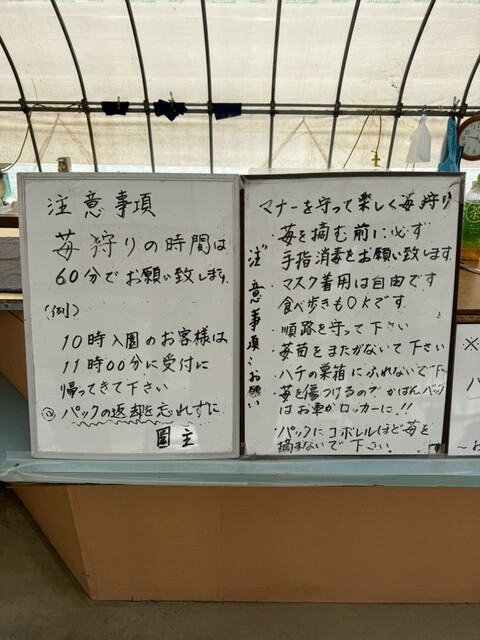 注意事項
苺狩りの時間は
60分でお願い致します。
(例)
10時入園のお客様は
11時00分に受付に
帰ってきて下さい
パックの返却を忘れずに
園主
注意事項・お願い
マナーを守って楽しく苺狩り
・苺を摘む前に必ず
手指消毒をお願い致します。
・マスク着用は自由です
食べ歩きもOKです。
・順路を守って下さい
・苺苗をまたがないで下さい
・ハチの巣箱にふれないで下
・苺を傷つけるのでかばん、バッグ
はお車かロッカーに!!
・パックにコボレルほど苺を
摘まないで下さい。
※
茶